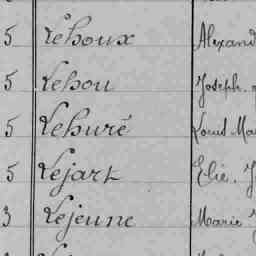 5 Lehoux Alexand
5 Lehou Joseph
5 Lehuré Louis Ma
5 Lejart Elie. J
3 Lejeune Marie J